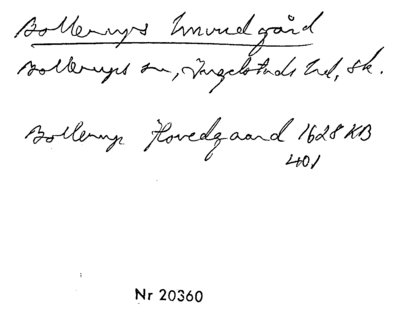 Bollerups huvudgård
Bollerups sn, Ingelstads hd, Sk.
Bollerup Hovedgaard 1628 KB
401
Nr 20360